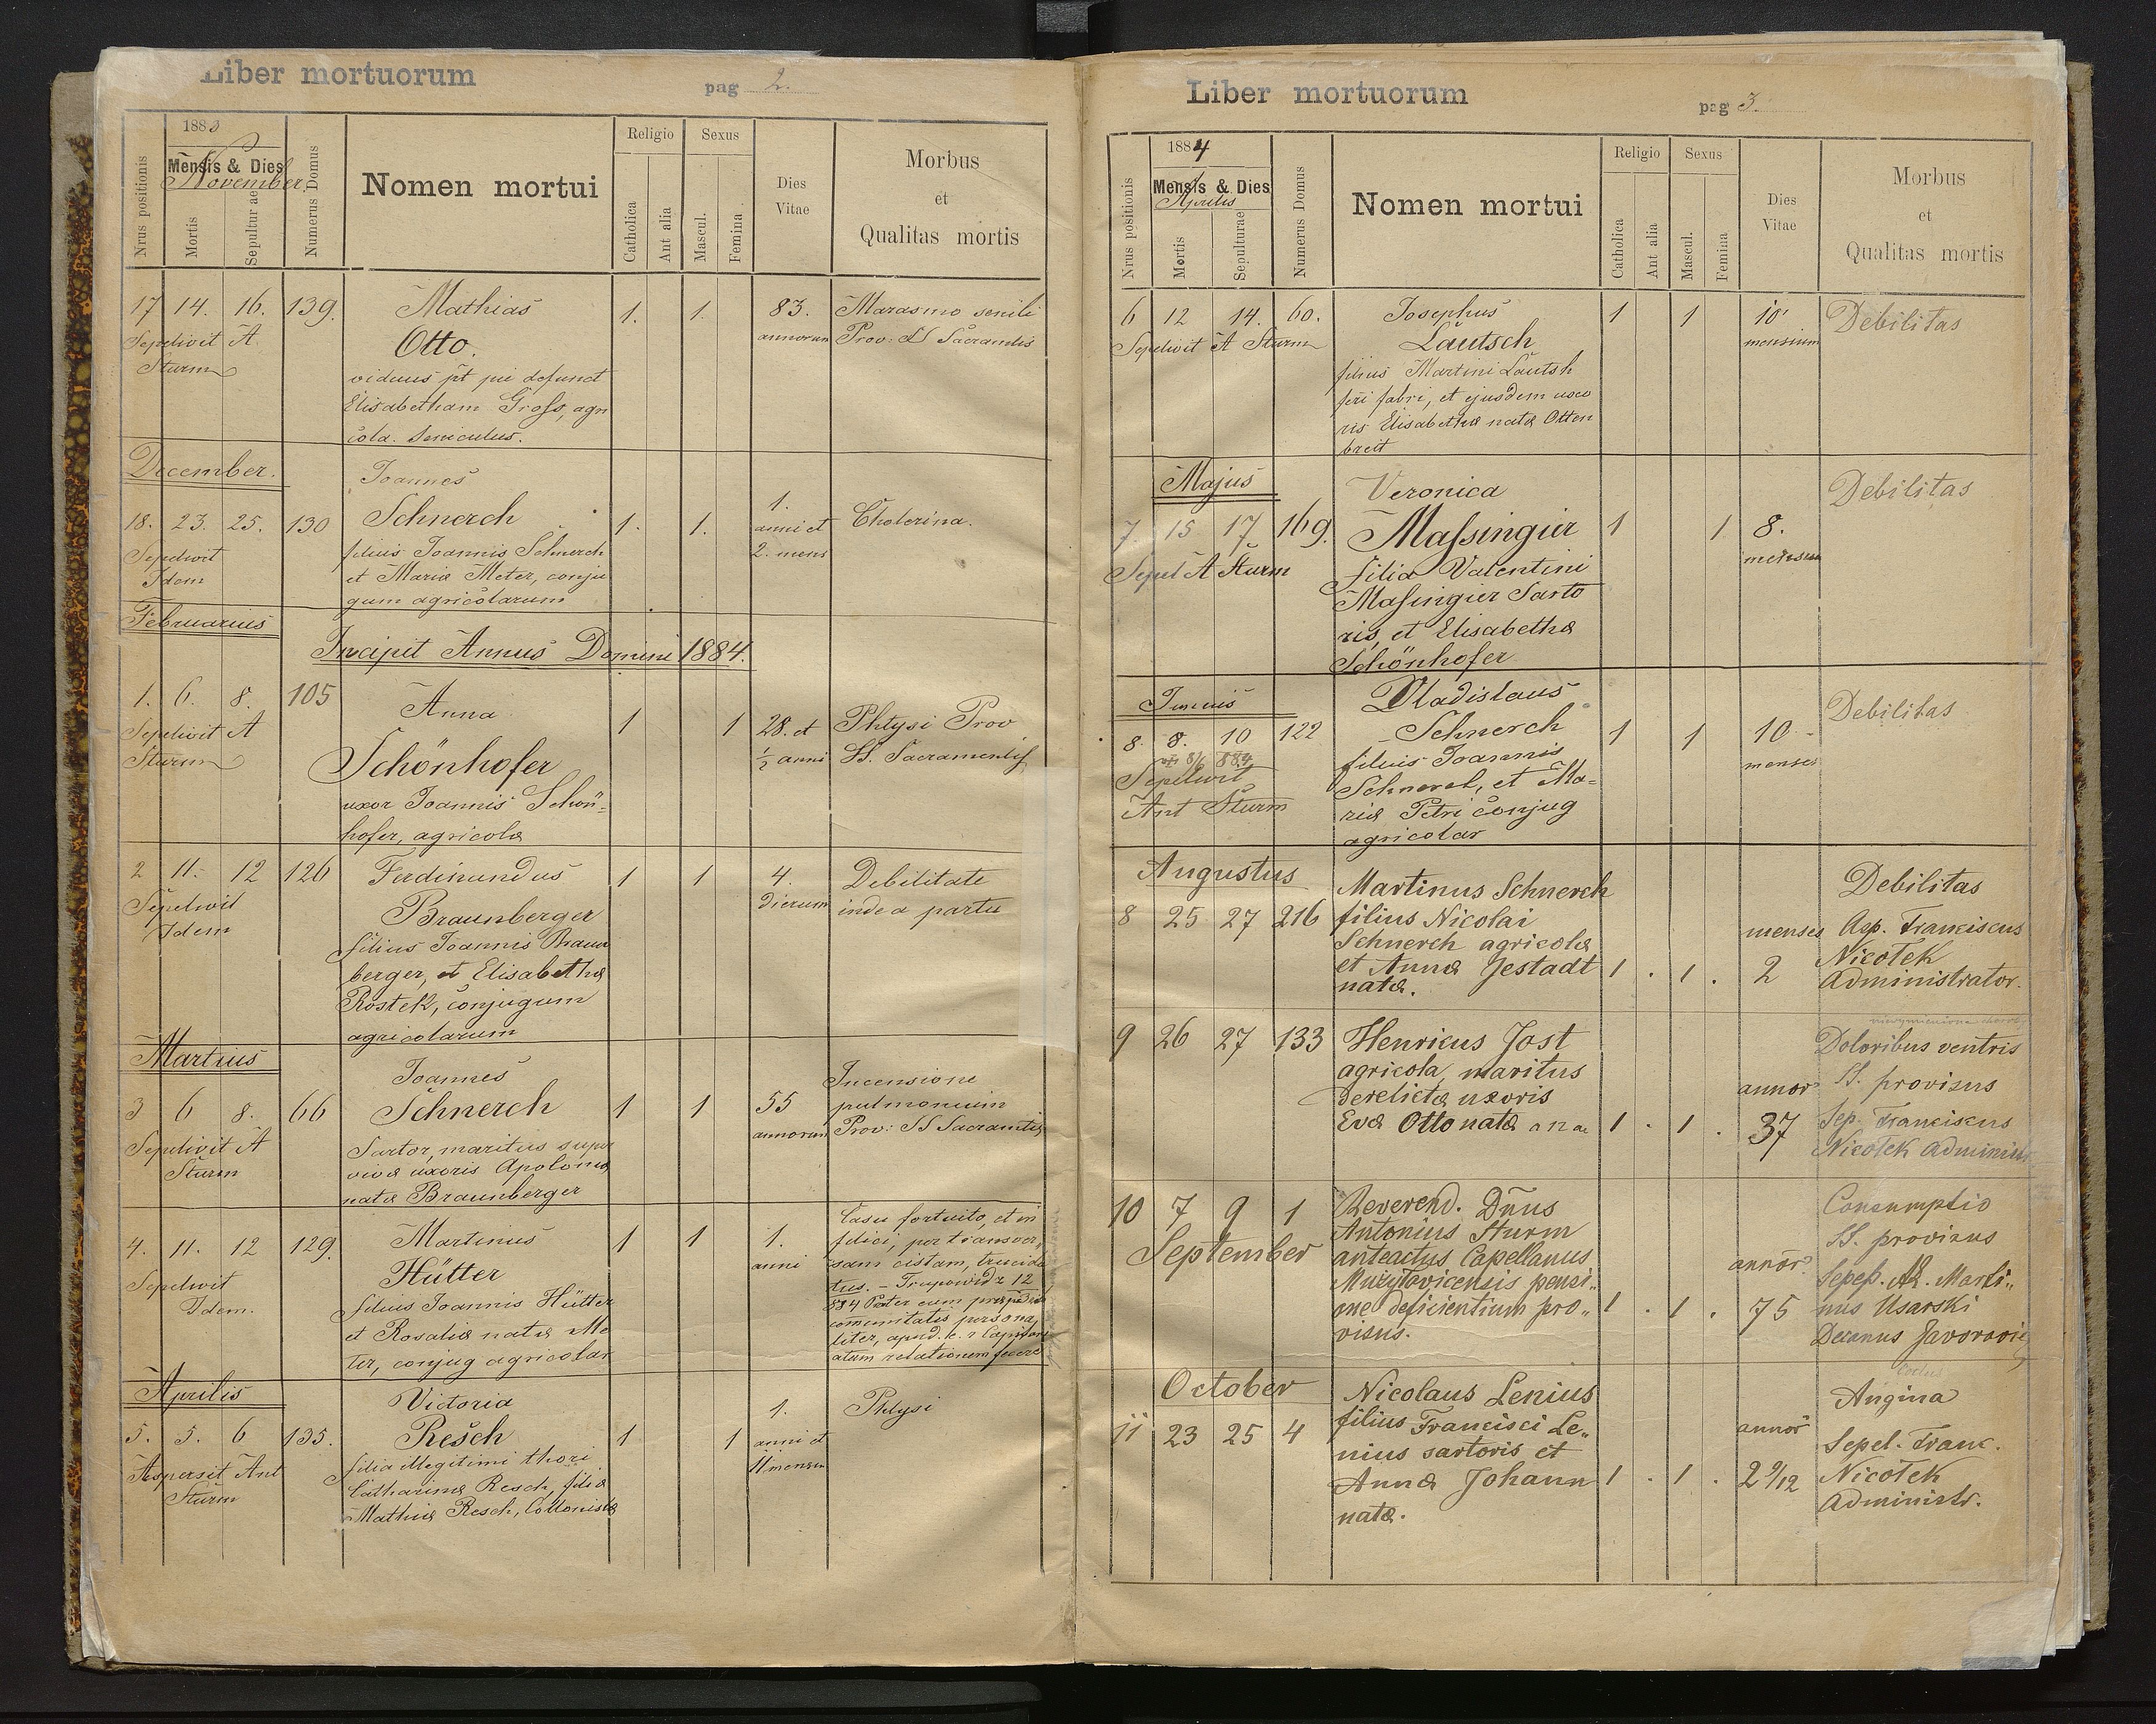 Liber mortuorum
pag 2.
1883
Mensis & Dies
November
Nrus positionis
Mortis
Sepulturae
Numerus Domus
Nomen mortui
Religio
Catholica
Aut alia
Sexus
Mascul.
Femina
Dies
Vitae
Morbus
et
Qualitas mortis
17 14. 16. 139. Mathias 1. 1. 83. Marasmo senili
Sepelivit A. Otto. annorum Prov: SS Sacramtis
Sturm
viduus pt pie defunct
Elisabetham Gross, agri
cola. Seniculus.
December.
Joannes
18. 23. 25. 130 Schnerch 1. 1. 1. Cholerina.
anni et
2. mens
Sepelivit filius Joannis Schnerch
Idem et Mariæ Meter, conju
gum agricolarum
Februarius
Incipit Annus Domini 1884.
1. 6. 8. 105 Anna 1 1 28. et Phtysi Prov
Sepelivit A ½ anni SS. Sacramentis
Sturm Schönhofer
uxor Joannis Schön=
hofer, agricolæ
2 11. 12 126 Ferdinandus 1 1 4. Debilitate
Sepelivit dierum inde a partu
Idem Braunberger
filius Joannis Braun
berger, et Elisabethæ
Rostek, conjugum
agricolarum
Martius
Joannes Incensione
3 6 8. 66 Schnerch 1 1 55 pulmonium
annorum Prov: SS Sacramtis
Sepelivit A Sartor, maritus super
Sturm vivæ uxoris Apoloniæ
natæ Braunberger
4. 11. 12 129. Martinus 1 1 1. Casu fortuito, et in
anni felici, per transver,
sam cistam, trucida
tus. - Trupowidz 12
884 Pater cum
communitatis persona,
liter, apud. c. r Capitane
atum relationem fecere
Hütter
Sepelivit filius Joannis Hütter
Idem. et Rosaliæ natæ Me
ter, conjug agricolar
Aprilis
Victoria 1. Phtysi
5. 5. 6 135. Resch 1 1 anni et
11 mensiu
Aspersit Ant filia illegitimi thori
Sturm Catharinæ Resch, filiæ
Mathiæ Resch, Collonistæ
Liber mortuorum
pag 3.
1884
Mensis & Dies
Aprilis
Nrus positionis
Mortis
Sepulturae
Numerus Domus
Nomen mortui
Religio
Catholica
Aut alia
Sexus
Mascul.
Femina
Dies
Vitae
Morbus
et
Qualitas mortis
6 12 14. 60. Josephus 1 1 10 Debilitas
Sepelivit A Sturm Lautsch mensium
filius Martini Lautsh
feri fabri, et ejusdem uxo
ris Elisabethæ natæ Otten
breit
Majus
Veronica Debilitas
7. 15 17 169. Massingier 1 1 8.
mensium
Sepel A Sturm filia Valentini
Masingier Sarto
ris, et Elisabethæ
Schönhofer
Junius
Vladislaus Debilitas
8. 8. 10 122 Schnerch 1 1 10
menses
8/6 884
Sepelivit filius Joannis
Ant Sturm Schnerch, et Ma=
riæ Petri conjug
agricolar
Augustus
Martinus Schnerch Debilitas
8 25 27 216 filius Nicolai menses Asp. Franciscus
Schnerch agricolæ Nicotek
et Annæ Jestadt 1 . 1 . 2 Administrator.
natæ.
9 26 27 133 Henricus Jost Doloribus ventris
agricola, maritus annor SS. provisus
derelictæ uxoris Sep. Franciscus
Evæ Otto natæ 1 . 1 . 37 Nicotek Administr
10 7 9 1 Reverend. Dnus Consumptio
Antonius Sturm SS. provisus
September anteactus Capellanus annor Marti"
Mużyłovicensis pensi"
one deficientium pro" 1 . 1 . 75 nus Usarski
visus. Decanus Javorovie
October Nicolaus Lenius Angina
11 23 25 4 filius Francisci Le" annor Sepel. Franc.
nius sartoris et
Annæ Johann 1 . 1 . 2 9/12 Nicotek
natæ. Administr.